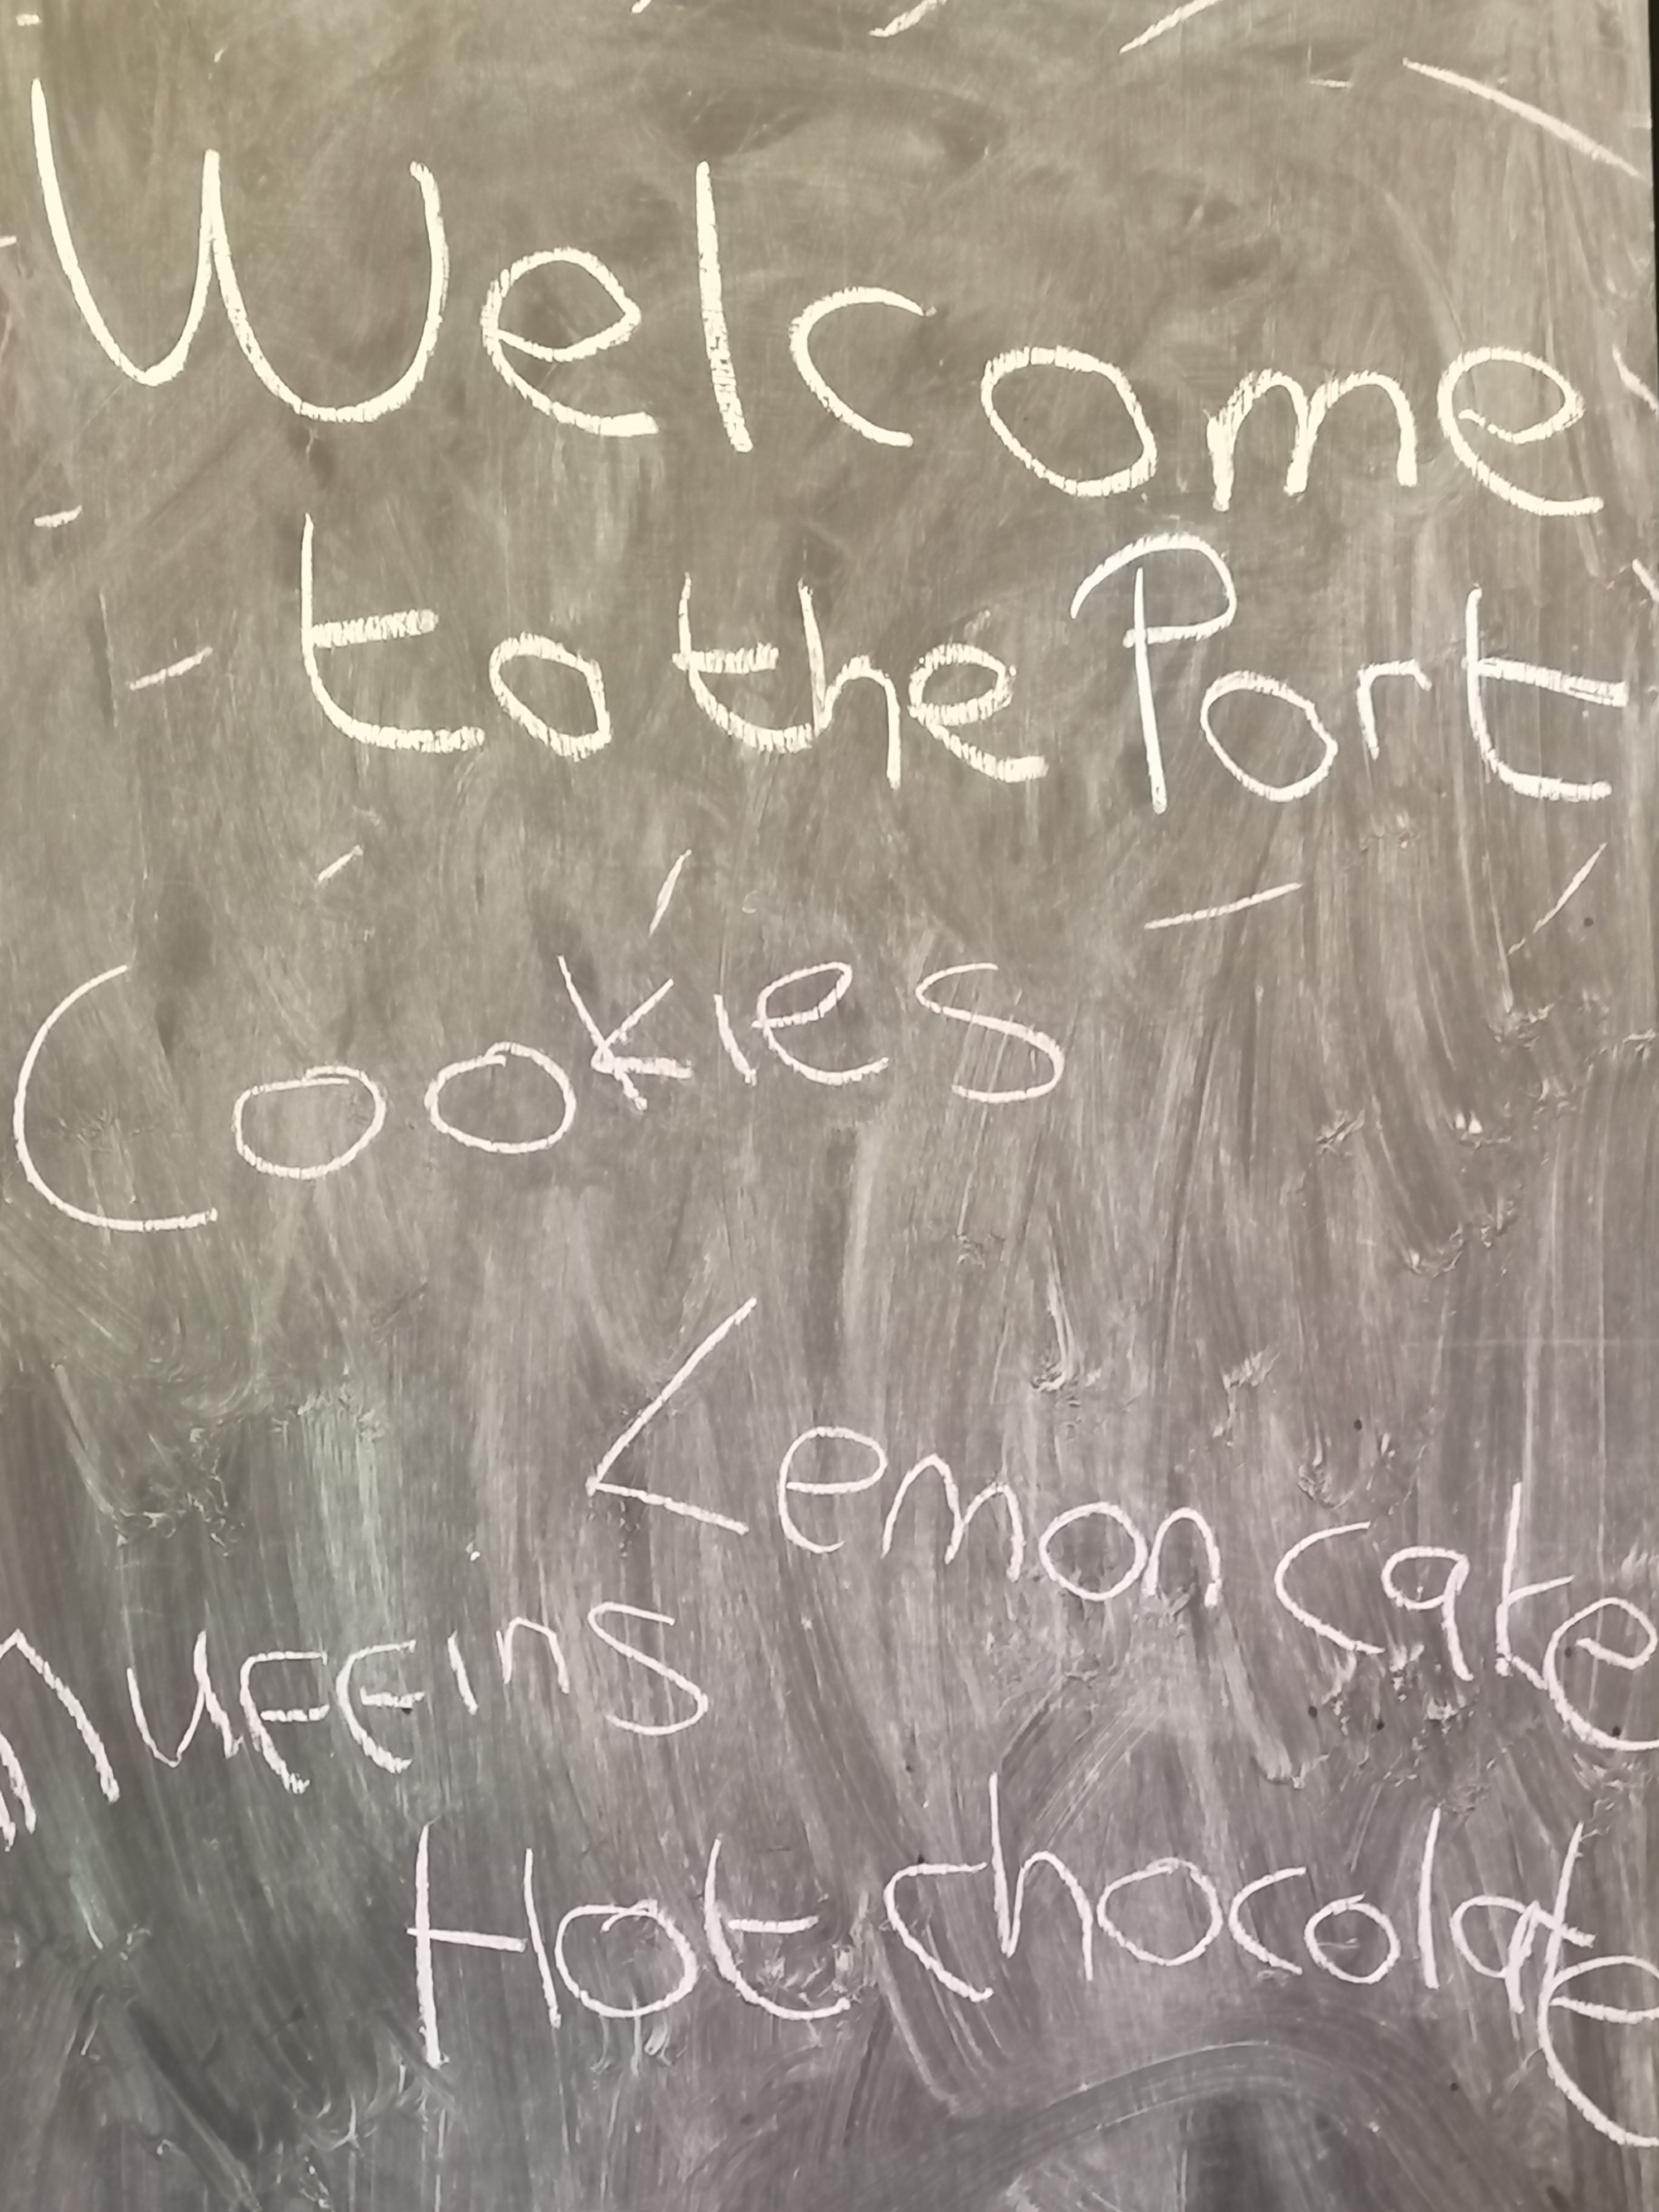 Welcome
to the Port
Cookies
Lemon cake
muffins
Hot chocolate